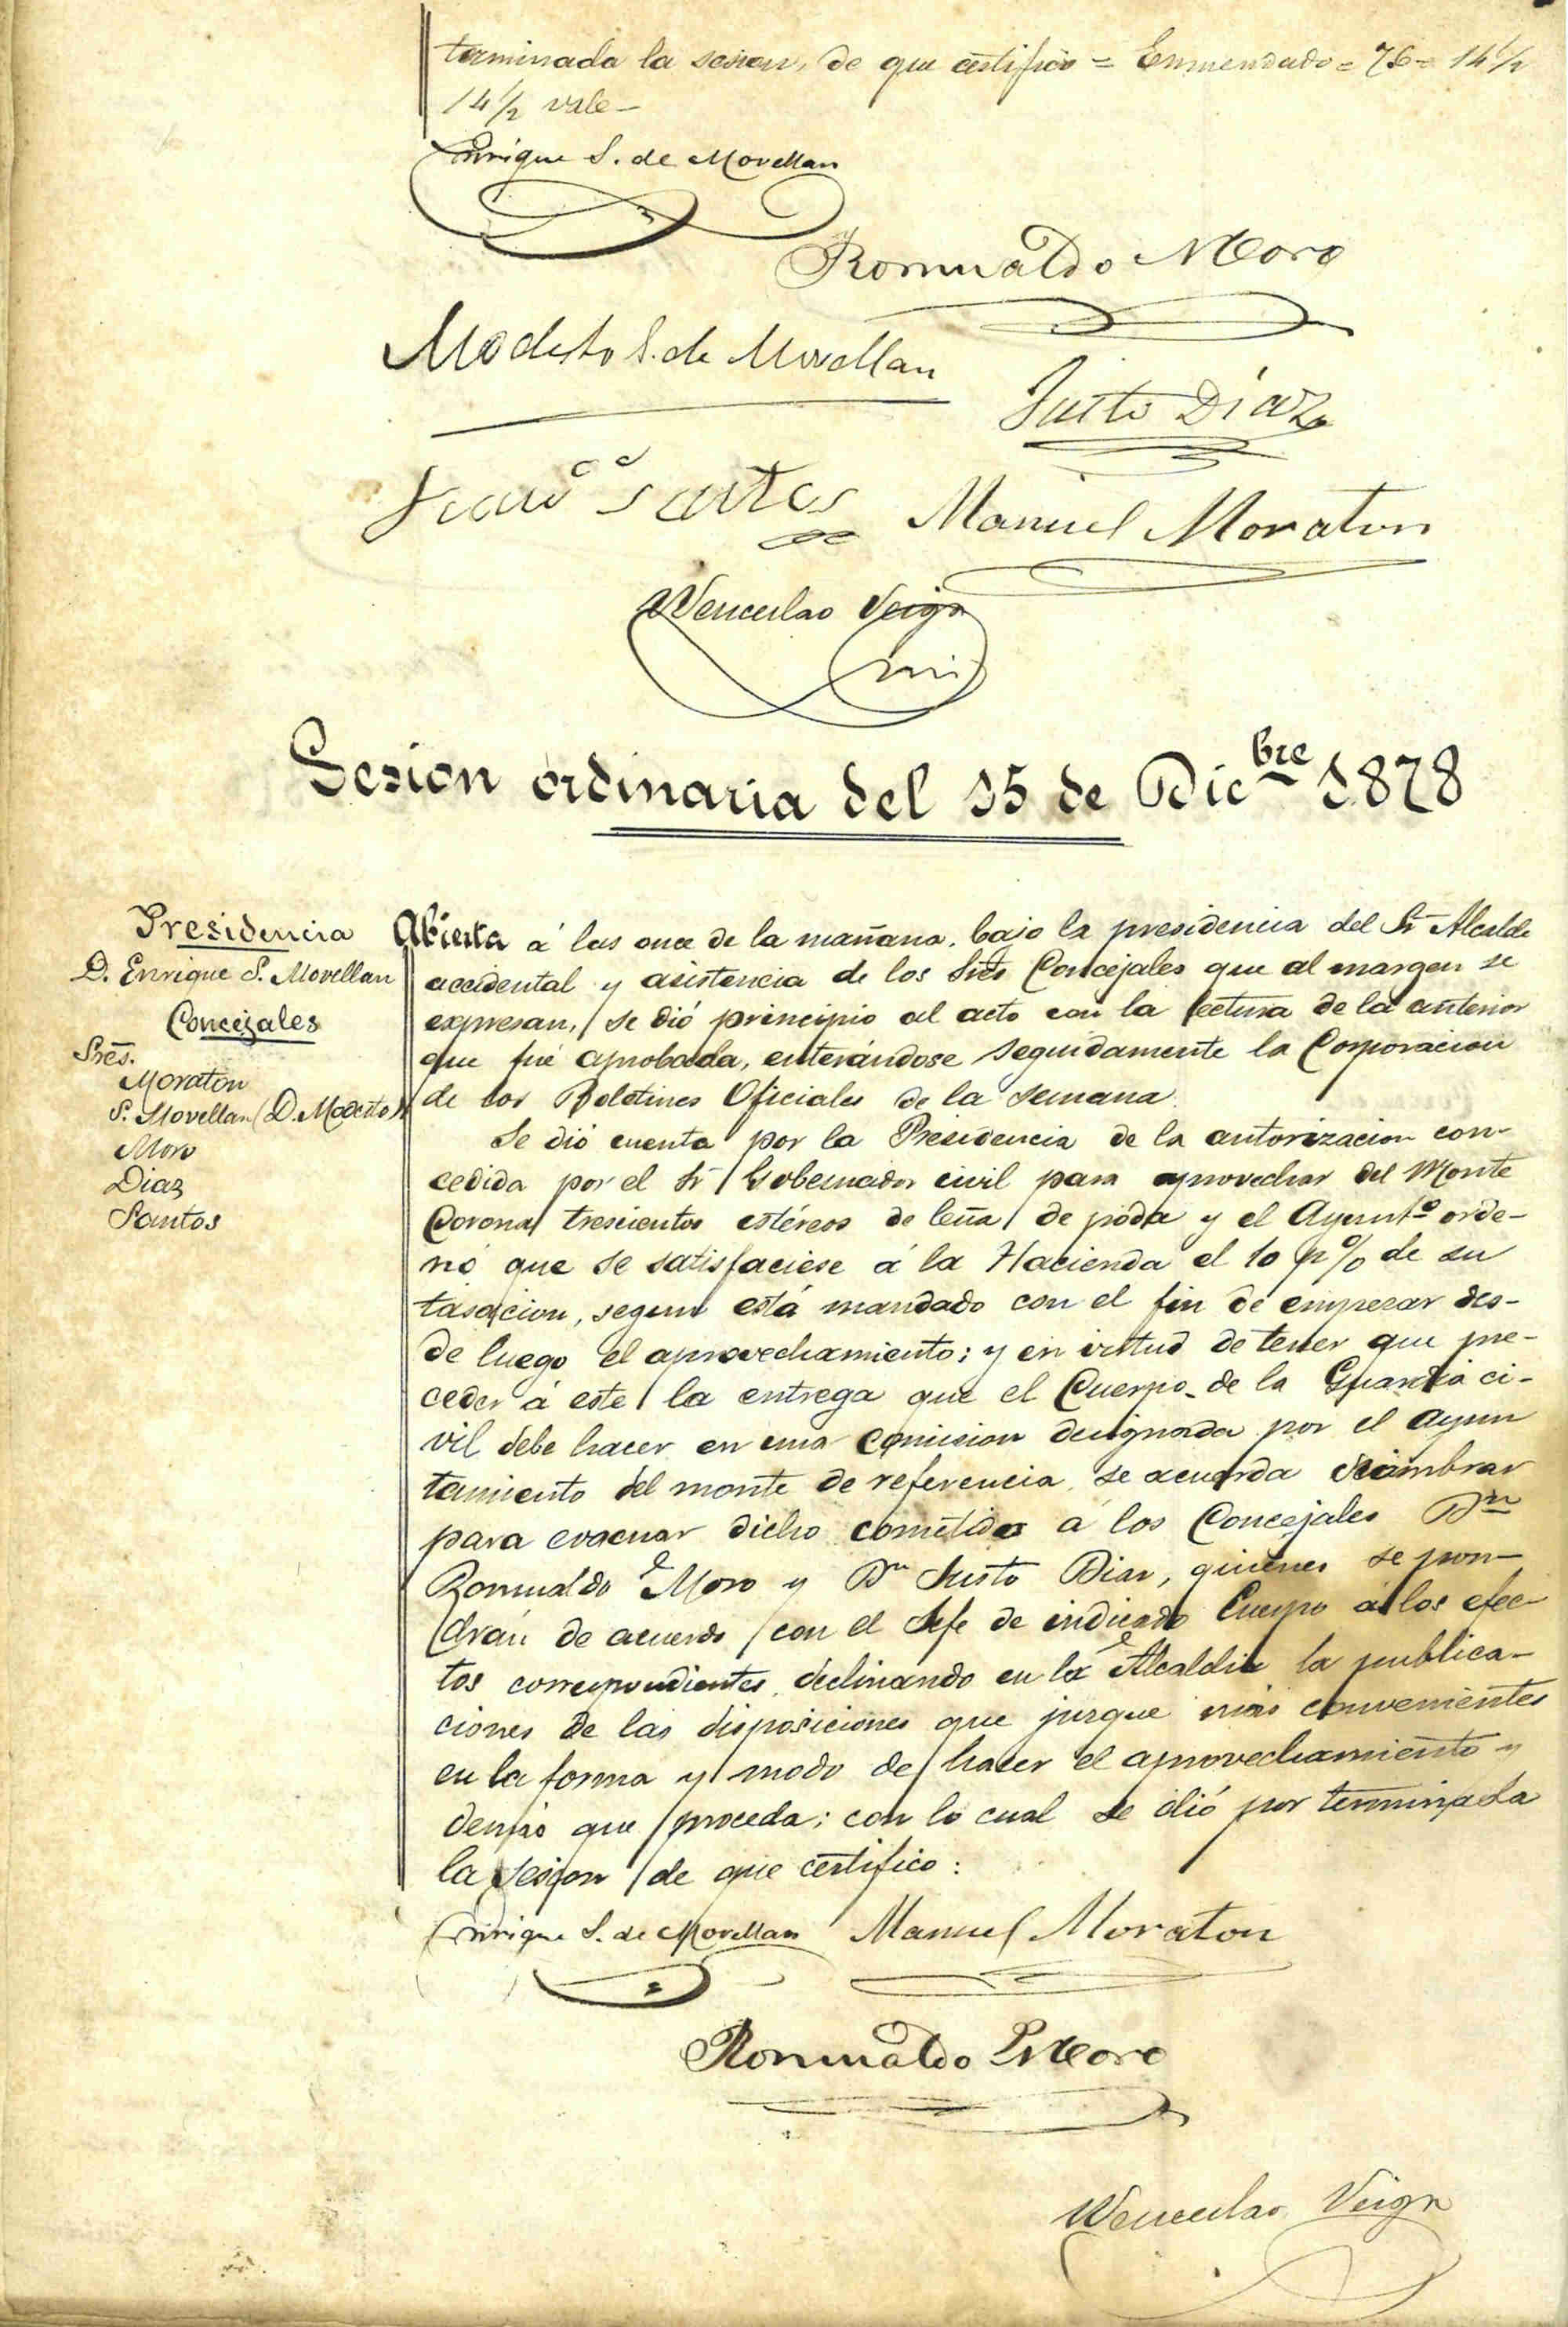 terminada la sesion, de que certifico = Enmendado = 76 = 14½
14½ vale —
Enrique S. de Movellan
Romualdo Moro
Modesto S. de Movellan
Justo Díaz
Santos
Manuel Moraton
Wenceslao Veiga
Sesion ordinaria del 15 de Dicbre 1878
Presidencia
D. Enrique S. Movellan
Concejales
Sres.
Moraton
S. Movellan (D. Modesto)
Moro
Diaz
Santos
Abierta á las once de la mañana, bajo la presidencia del Sr Alcalde
accidental y asistencia de los Sres Concejales que al margen se
expresan, se dió principio al acto con la lectura de la anterior
que fué aprobada, enterándose seguidamente la Corporacion
de los Boletines Oficiales de la semana.
Se dió cuenta por la Presidencia de la autorizacion con-
cedida por el Sr Gobernador civil para aprovechar del Monte
Corona trescientos estéreos de leña de poda y el Ayuntº orde-
nó que se satisfaciese á la Hacienda el 10 p% de su
tasacion, segun está mandado con el fin de empezar des-
de luego el aprovechamiento; y en virtud de tener que pre-
ceder á este la entrega que el Cuerpo de la Guardia ci-
vil debe hacer en una comision designada por el Ayun
tamiento del monte de referencia, se acuerda nombrar
para evacuar dicho cometido á los Concejales Dn
Romualdo Moro y Dn Justo Diaz, quienes se pon-
drán de acuerdo con el Jefe de indicado Cuerpo á los efec-
tos correspondientes, declinando en la Alcaldia la publica-
ciones de las disposiciones que juzgue más convenientes
en la forma y modo de hacer el aprovechamiento y
demás que proceda; con lo cual se dió por terminada
la sesion de que certifico:
Enrique S. de Movellan Manuel Moraton
Romualdo Moro
Wenceslao Veiga